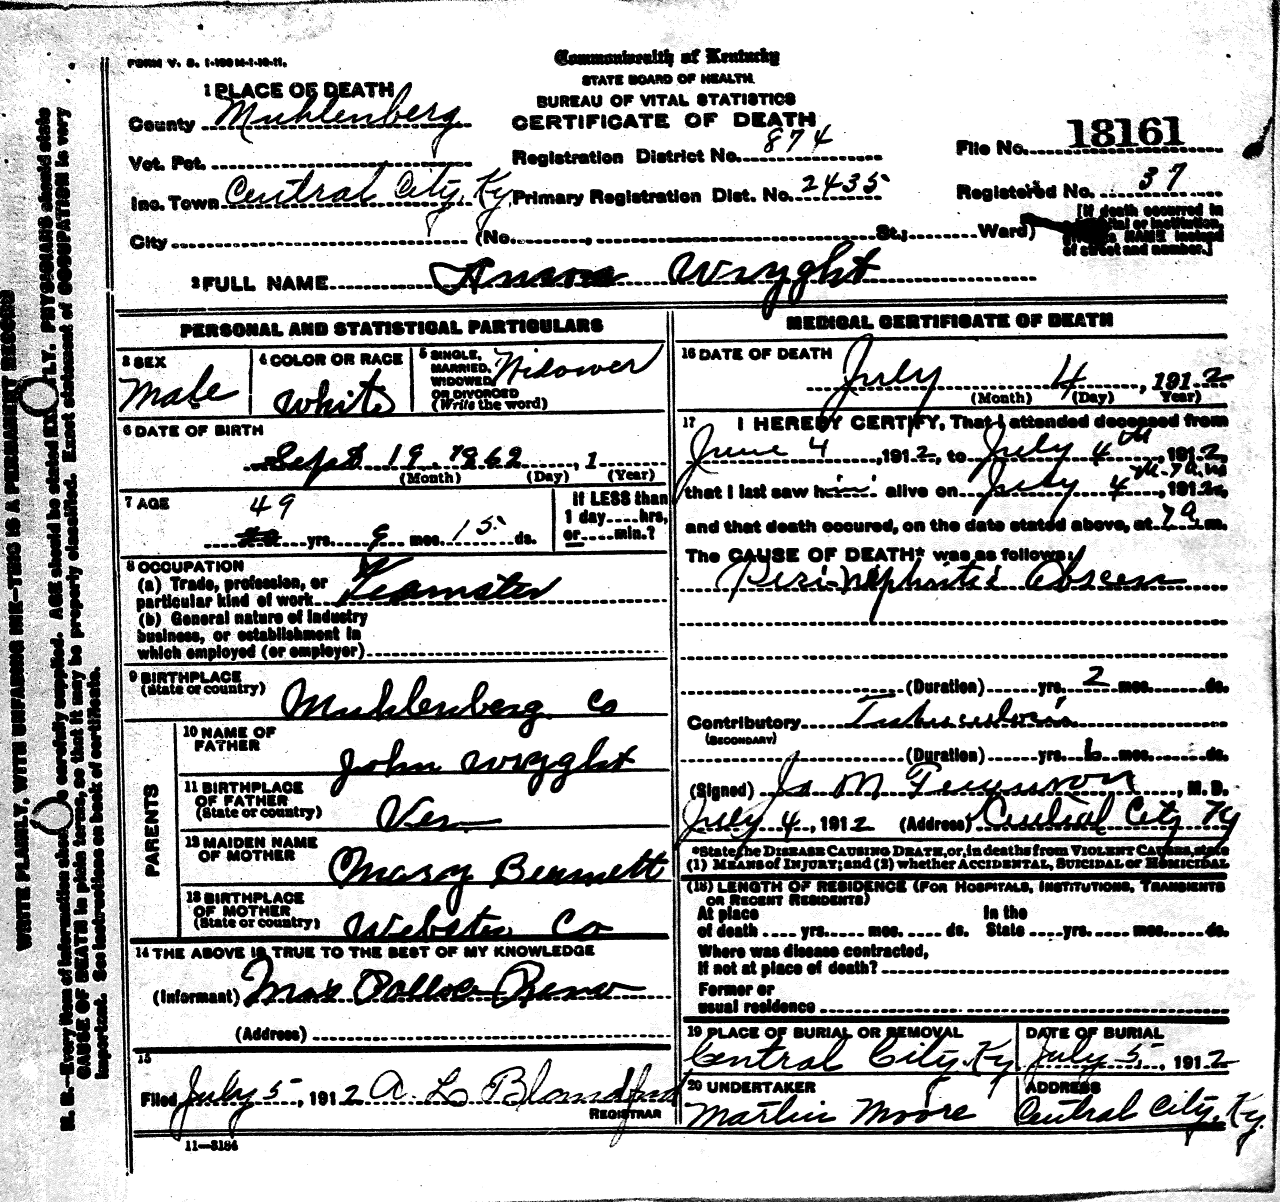 FORM V. S. 1-100M-1-10-11.
Commonwealth of Kentucky
STATE BOARD OF HEALTH
BUREAU OF VITAL STATISTICS
CERTIFICATE OF DEATH
1 PLACE OF DEATH
County Muhlenberg
Vot. Pct.
Inc. Town Central City, Ky
City (No. , St.; Ward)
Registration District No. 874
Primary Registration Dist. No. 2435
File No. 18161
Registered No. 37
[If death occurred in
a hospital or institution,
give its NAME instead
of street and number.]
2 FULL NAME Wryght
PERSONAL AND STATISTICAL PARTICULARS
3 SEX
Male
4 COLOR OR RACE
White
5 SINGLE,
MARRIED,
WIDOWED,
OR DIVORCED
(Write the word)
Widower
6 DATE OF BIRTH
Sept 19, 1862, 1
(Month) (Day) (Year)
7 AGE
49
yrs. 9 mos. 15 ds.
If LESS than
1 day....hrs.
or....min.?
8 OCCUPATION
(a) Trade, profession, or
particular kind of work Teamster
(b) General nature of industry
business, or establishment in
which employed (or employer)
9 BIRTHPLACE
(State or country) Muhlenberg Co
PARENTS
10 NAME OF
FATHER
John Wryght
11 BIRTHPLACE
OF FATHER
(State or country) Ven
12 MAIDEN NAME
OF MOTHER
Mary Bennett
13 BIRTHPLACE
OF MOTHER
(State or country) Webster Co
14 THE ABOVE IS TRUE TO THE BEST OF MY KNOWLEDGE
(Informant) Mrs
(Address)
15
Filed July 5, 1912 A. L. Blandford
REGISTRAR
11—3184
MEDICAL CERTIFICATE OF DEATH
16 DATE OF DEATH
July 4, 1912
(Month) (Day) (Year)
17 I HEREBY CERTIFY, That I attended deceased from
June 4, 1912, to July 4th, 1912,
that I last saw him alive on July 4th, 1912,
and that death occured, on the date stated above, at 7 a m.
The CAUSE OF DEATH* was as follows:
Peri-Nephritic Abscess
(Duration) yrs. 2 mos. ds.
Contributory Tuberculosis
(SECONDARY)
(Duration) yrs. 6 mos. ds.
(Signed) Jo M Ferguson, M. D.
July 4, 1912 (Address) Central City Ky
*State the DISEASE CAUSING DEATH, or, in deaths from VIOLENT CAUSES, state
(1) MEANS OF INJURY; and (2) whether ACCIDENTAL, SUICIDAL or HOMICIDAL
(18) LENGTH OF RESIDENCE (FOR HOSPITALS, INSTITUTIONS, TRANSIENTS
OR RECENT RESIDENTS)
At place In the
of death .... yrs. .... mos. .... ds. State .... yrs. .... mos. .... ds.
Where was disease contracted,
if not at place of death?
Former or
usual residence
19 PLACE OF BURIAL OR REMOVAL
Central City, Ky
DATE OF BURIAL
July 5, 1912
20 UNDERTAKER
Martin Moore
ADDRESS
Central City, Ky.
WRITE PLAINLY, WITH UNFADING INK—THIS IS A PERMANENT RECORD
N. B.—Every item of information should be carefully supplied. AGE should be stated EXACTLY. PHYSICIANS should state
CAUSE OF DEATH in plain terms, so that it may be properly classified. Exact statement of OCCUPATION is very
important. See instructions on back of certificate.